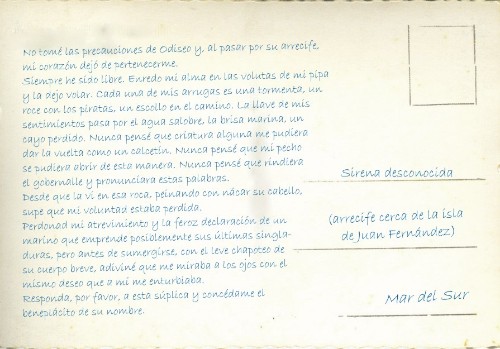 No tomé las precauciones de Odiseo y, al pasar por su arrecife,
mi corazón dejó de pertenecerme.
Siempre he sido libre. Enredo mi alma en las volutas de mi pipa
y la dejo volar. Cada una de mis arrugas es una tormenta, un
roce con los piratas, un escollo en el camino. La llave de mis
sentimientos pasa por el agua salobre, la brisa marina, un
cayo perdido. Nunca pensé que criatura alguna me pudiera
dar la vuelta como un calcetín. Nunca pensé que mi pecho
se pudiera abrir de esta manera. Nunca pensé que rindiera
el gobernalle y pronunciara estas palabras.
Desde que la vi en esa roca, peinando con nácar su cabello,
supe que mi voluntad estaba perdida.
Perdonad mi atrevimiento y la feroz declaración de un
marino que emprende posiblemente sus últimas singla-
duras, pero antes de sumergirse, con el leve chapoteo de
su cuerpo breve, adiviné que me miraba a los ojos con el
mismo deseo que a mi me enturbiaba.
Responda, por favor, a esta súplica y concédame el
beneplácito de su nombre.
Sirena desconocida
(arrecife cerca de la isla
de Juan Fernández)
Mar del Sur